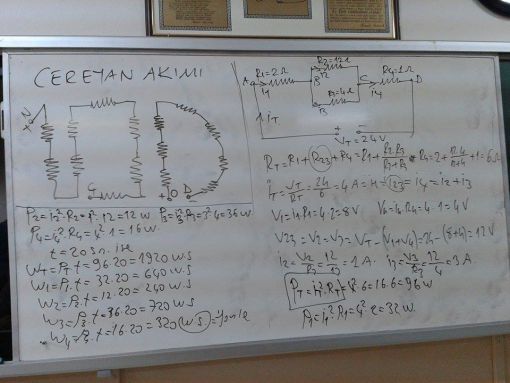 CEREYAN AKIMI
P2=i2².R2=1².12=12W P3=i3².R3=3².4=36W
P4=i4².R4=4².1=16W
t=20sn. ise
WT=PT.t=96.20=1920WS
W1=P1.t=32.20=640WS
W2=P2.t=12.20=240WS
W3=P3.t=36.20=720WS
W4=P4.t=16.20=320(WS)=Joule
R1=2Ω R2=12Ω R4=1Ω
A B C D
i2
i1 i4
R3=4Ω
i3
iT
+ -
VT=24V
RT=R1+R23+R4=R1+R2.R3/R2+R3+R4=2+12.4/12+4+1=6Ω
iT=VT/RT=24/6=4A=i1=i23=i4=i2+i3
V1=i1.R1=4.2=8V V4=i4.R4=4.1=4V
V23=V2=V3=VT-(V1+V4)=24-(8+4)=12V
i2=V2/R2=12/12=1A i3=V3/R3=12/4=3A
PT=iT².RT=4².6=16.6=96W
P1=i1².R1=4².2=32W